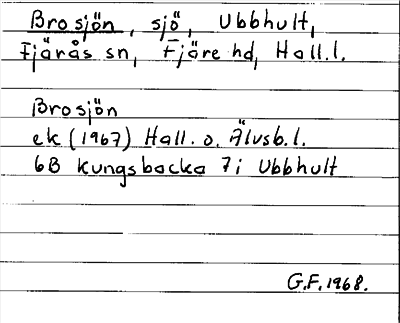 Brosjön, sjö, Ubbhult,
Fjärås sn, Fjäre hd, Hall.l.
Brosjön
ek (1967) Hall. o. Älvsb.l.
6B Kungsbacka 7i Ubbhult
G.F. 1968.